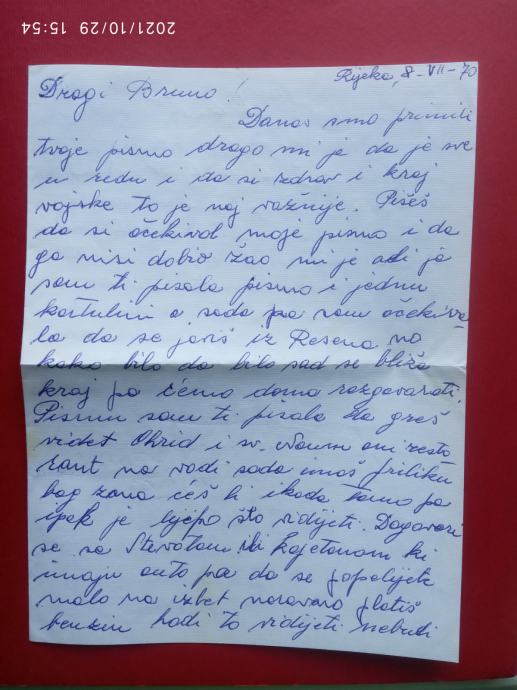 2021/10/29 15:54
Rijeka, 8-VII-70
Dragi Bruno!
Danas smo primili
tvoje pismo drago mi je da je sve
u redu i da si zdrav i kraj
vojske to je naj važnije. Pišeš
da si očekival moje pismo i da
ga nisi dobio žao mi je ali ja
sam ti pisala pismo i jednu
kartulinu a sada pa sam očekiva-
la da se javiš iz Resena no
kako bilo da bilo sad se bliža
kraj pa ćemo doma razgovarati.
Pismu sam ti pisala da greš
videt Ohrid i sv. Naum oni resto
rant na vodi sada imaš priliku
bog zna ćeš li ikada tamo pa
ipak je ljepo što vidijeti. Dogovori
se sa Stevotom ili Kajetanom ki
imaju auto pa da se popelijete
malo na izlet naravano platiš
benzin hodi to vidijeti nebudi